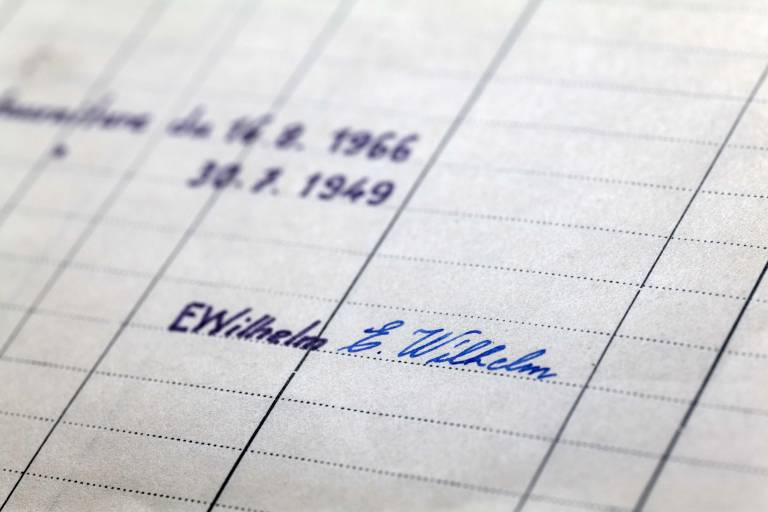 du 16. 8. 1966
30. 7. 1949
EWilhelm E. Wilhelm